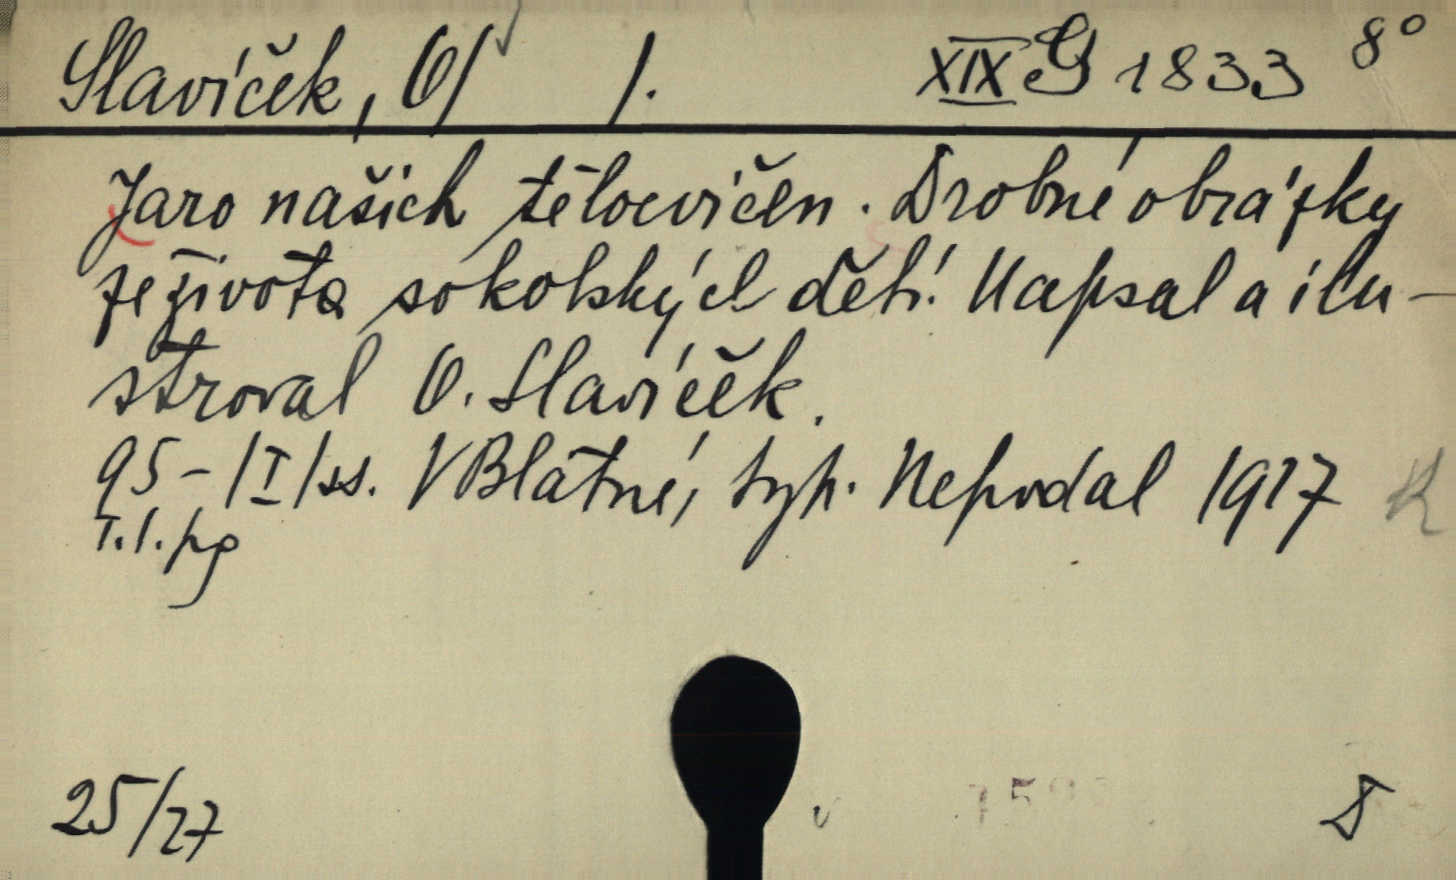 Slavíček, O/ /. XIX G 1833 8°
Jaro našich tělocvičen. Drobné obrázky
ze života sokolských dětí. Napsal a ilu-
stroval O. Slavíček.
95-/I/ss. V Blatné, typ. Nepodal 1917
T.l.pg
25/27